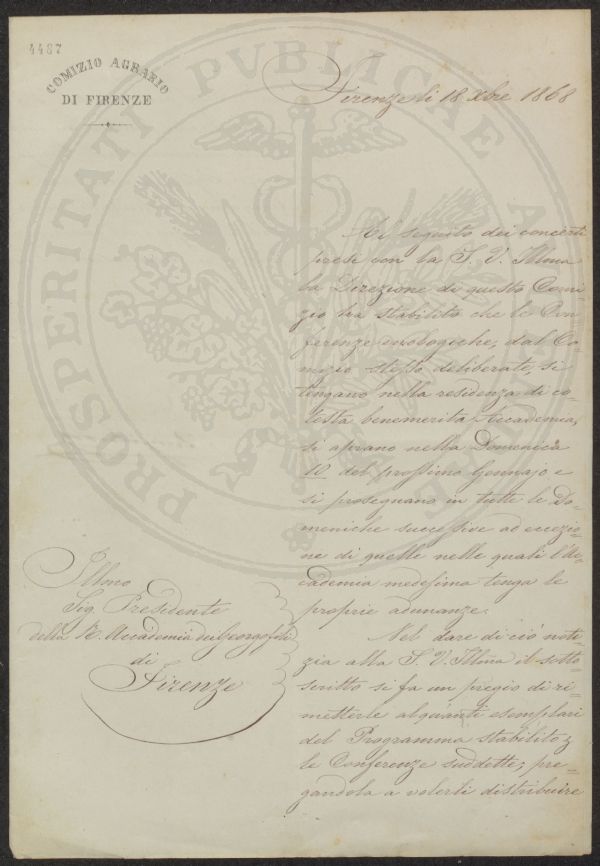 4487
COMIZIO AGRARIO
DI FIRENZE
Firenze li 18 Xbre 1868
PROSPERITATI PUBLICAE
Al seguito dei concerti
presi con la S. V. Illma
la Direzione di questo Comi-
zio ha stabilito che le Con-
ferenze enologiche, dal Co-
mizio stesso deliberate, si
tengano nella residenza di co-
testa benemerita Accademia,
si aprano nella Domenica
10 del prossimo Gennajo e
si proseguano in tutte le Do-
meniche successive ad eccezio-
ne di quelle nelle quali l'Ac-
cademia medesima tenga le
proprie adunanze.
Nel dare di ciò noti-
zia alla S. V. Illma il sotto-
scritto si fa un pregio di ri-
metterle alquanti esemplari
del Programma stabilito p
le Conferenze suddette, pre-
gandola a volerli distribuire
Illmo
Sig. Presidente
della R. Accademia dei Georgofili
di
Firenze